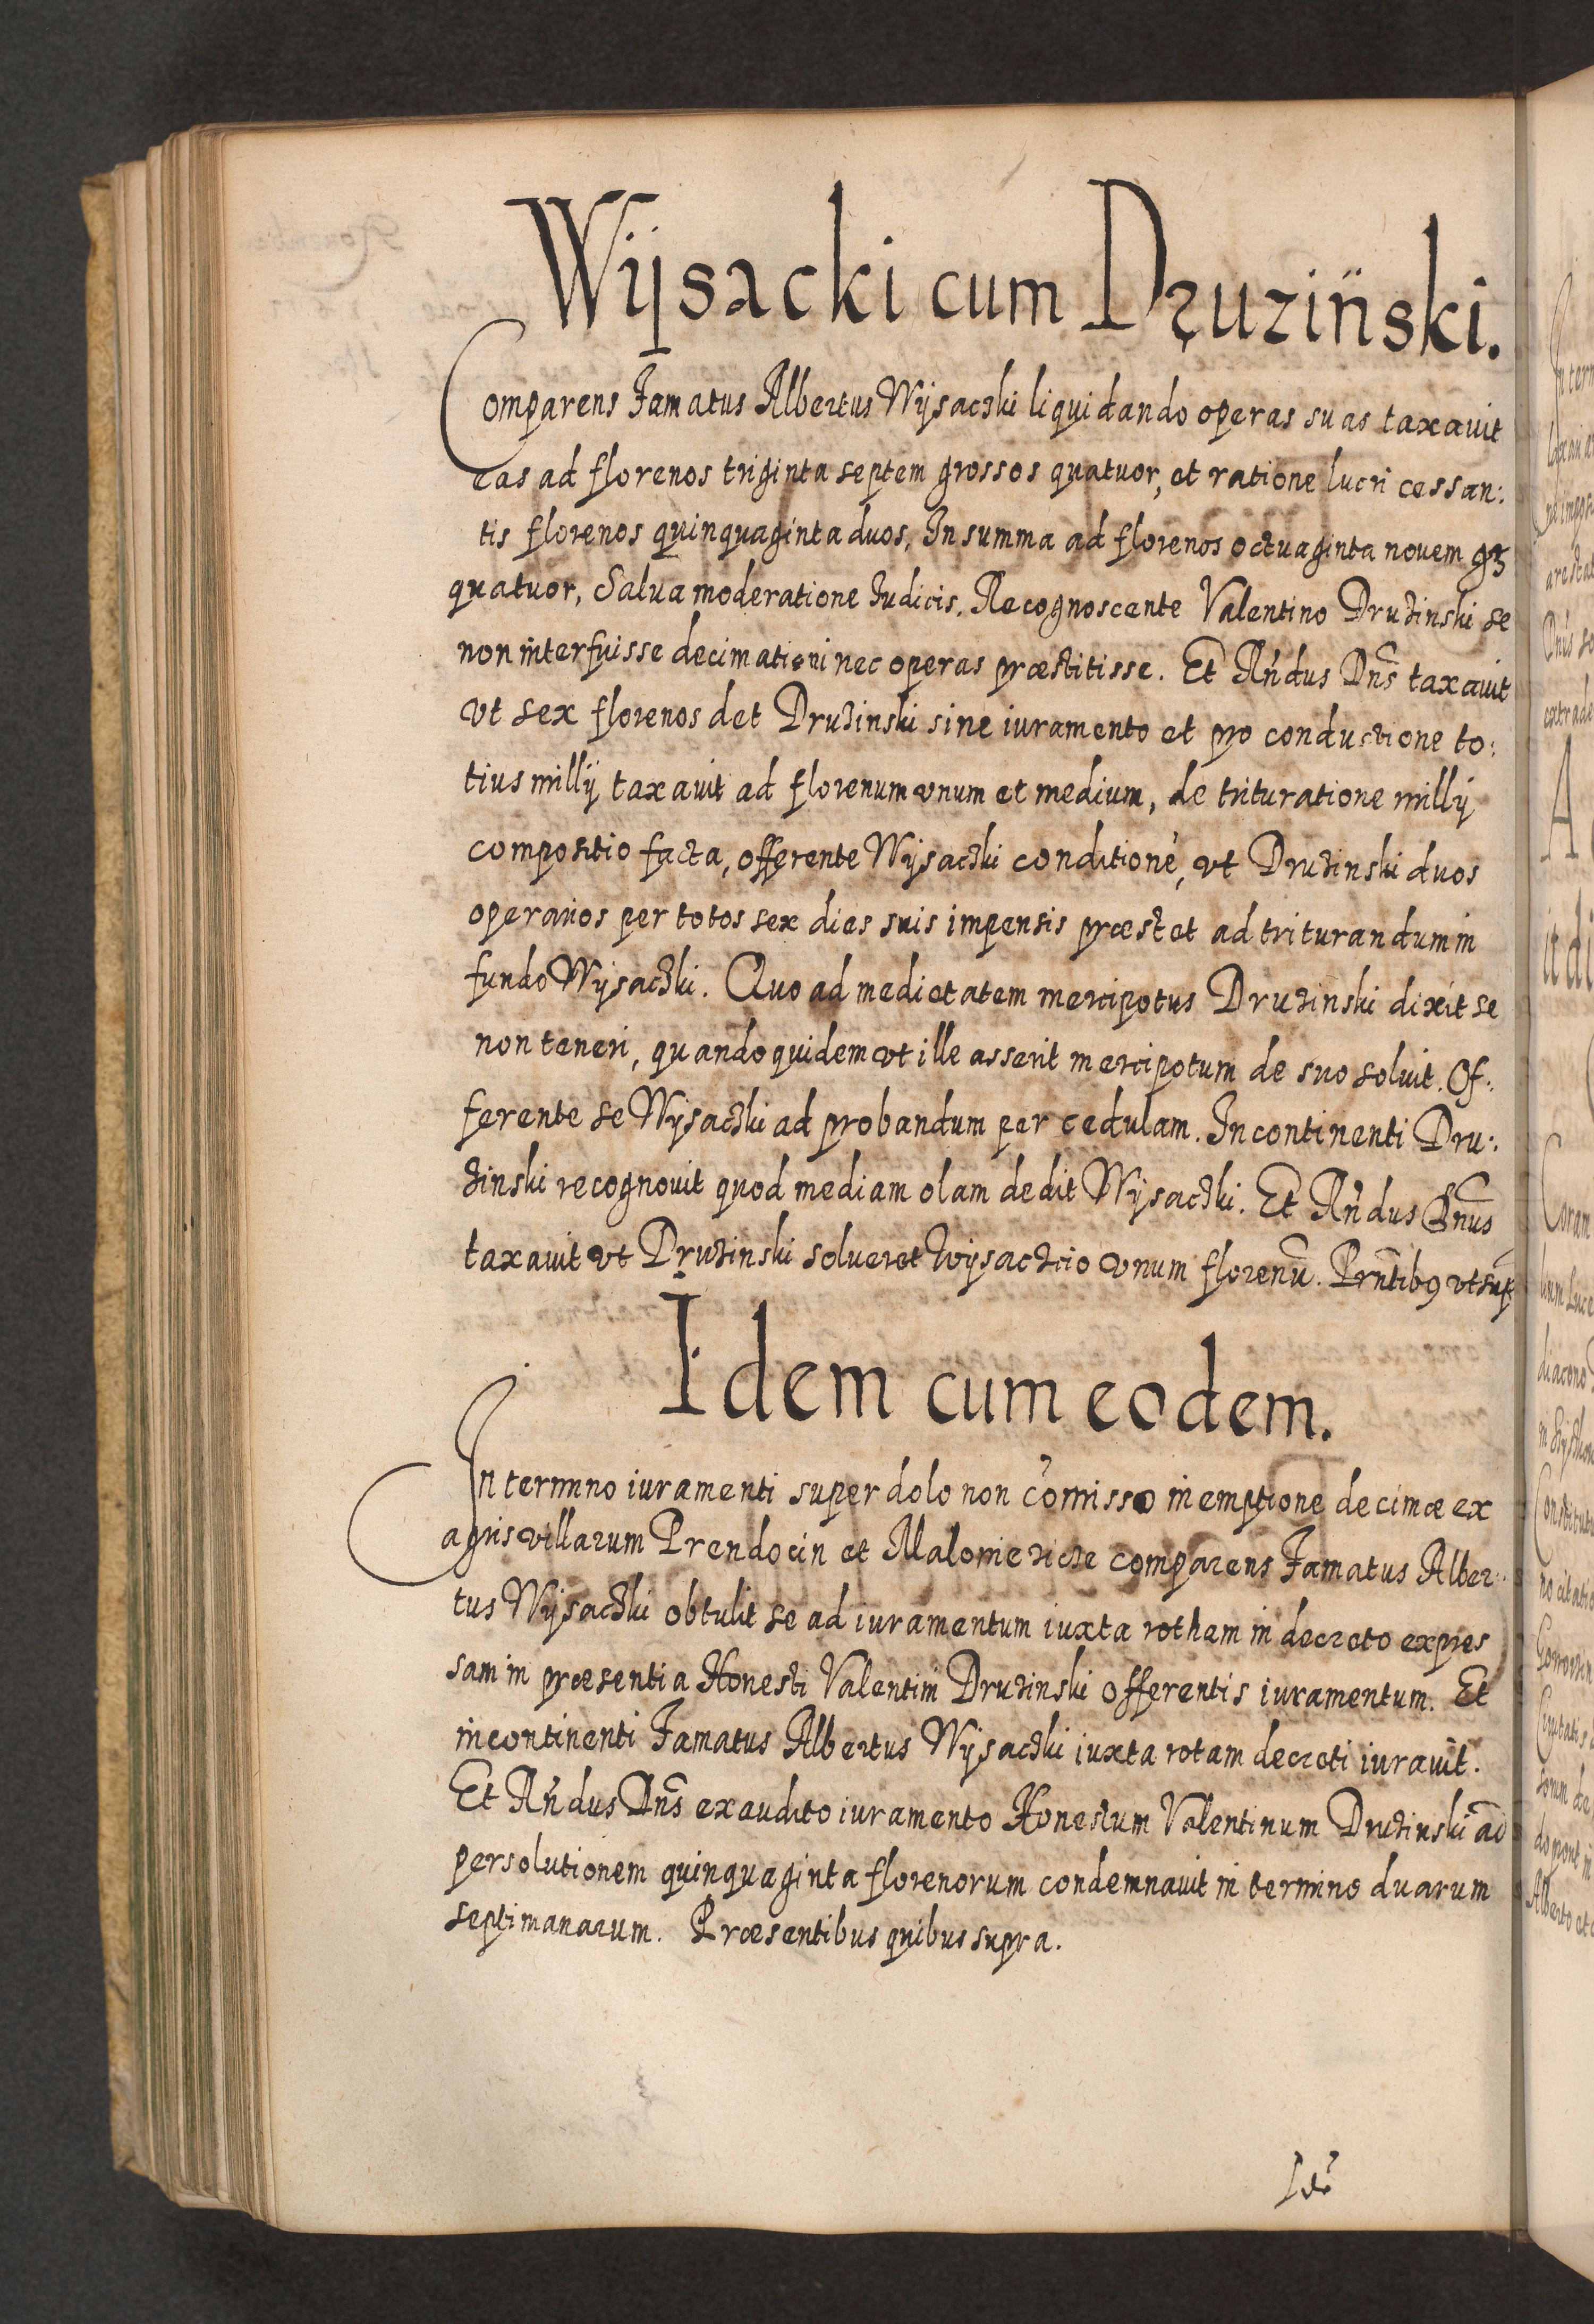 Wijsacki cum Druziński.
Comparens Famatus Albertus Wijsaczki liquidando operas suas taxauit
eas ad florenos triginta septem grossos quatuor, et ratione lucri cessan:
tis florenos quinquaginta duos, In summa ad florenos octuaginta nouem gr
quatuor, Salua moderatione Iudicis. Recognoscente Valentino Druzinski se
non interfuisse decimationi nec operas præstitisse. Et Rńdus Dns̃ taxauit
vt sex florenos det Druzinski sine iuramento et pro conductione to:
tius millij taxauit ad florenum vnum et medium, de trituratione millij
compositio facta, offerente Wijsaczki conditionẽ, vt Druzinski duos
operarios per totos sex dies suis impensis præstet ad triturandum in
fundo Wijsaczki. Quo ad medietatem mercipotus Druzinski dixit se
non teneri, quandoquidem vt ille asserit mercipotum de suo soluit. Of:
ferente se Wijsaczki ad probandum per cedulam. In continenti Dru:
zinski recognouit quod mediam olam dedit Wijsaczki. Et Rńdus Dnus̃
taxauit vt Druzinski solueret Wijsaczcio vnum florenũ. Prñtibꝰ vt sup
Idem cum eodem.
In termino iuramenti super dolo non cõmisso in emptione decimæ ex
agris villarum Prendocin et Malomericze comparens Famatus Alber:
tus Wijsaczki obtulit se ad iuramentum iuxta rotham in decreto expres
sam in præsentia Honesti Valentini Druzinski offerentis iuramentum. Et
in continenti Famatus Albertus Wijsaczki iuxta rotam decreti iurauit.
Et Rńdus Dns̃ exaudito iuramento Honestum Valentinum Druzinski ad
persolutionem quinquaginta florenorum condemnauit in termino duarum
septimanarum. Præsentibus quibus supra.